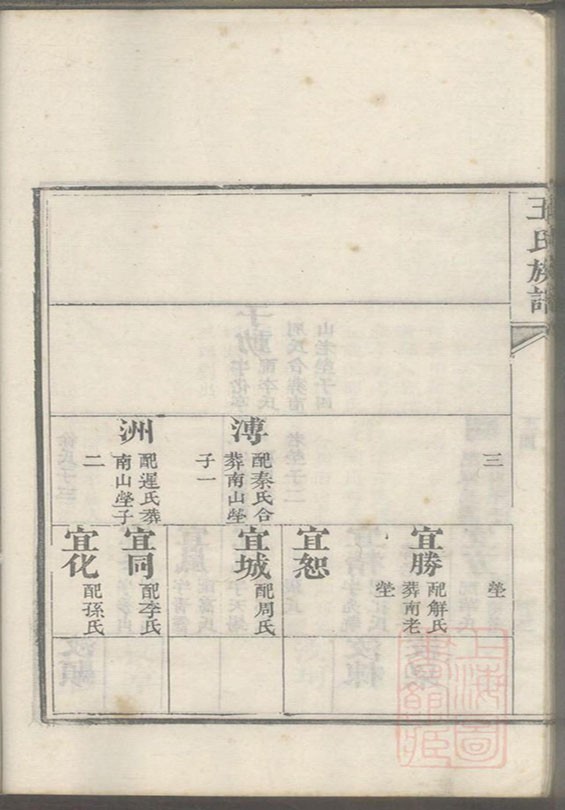 王氏族譜
三
溥
配秦氏合
葬南山塋
子一
洲
配遲氏葬
南山塋子
二
塋
宜勝
配解氏
葬南老
塋
宜恕
宜城
配周氏
宜同
配李氏
宜化
配孫氏